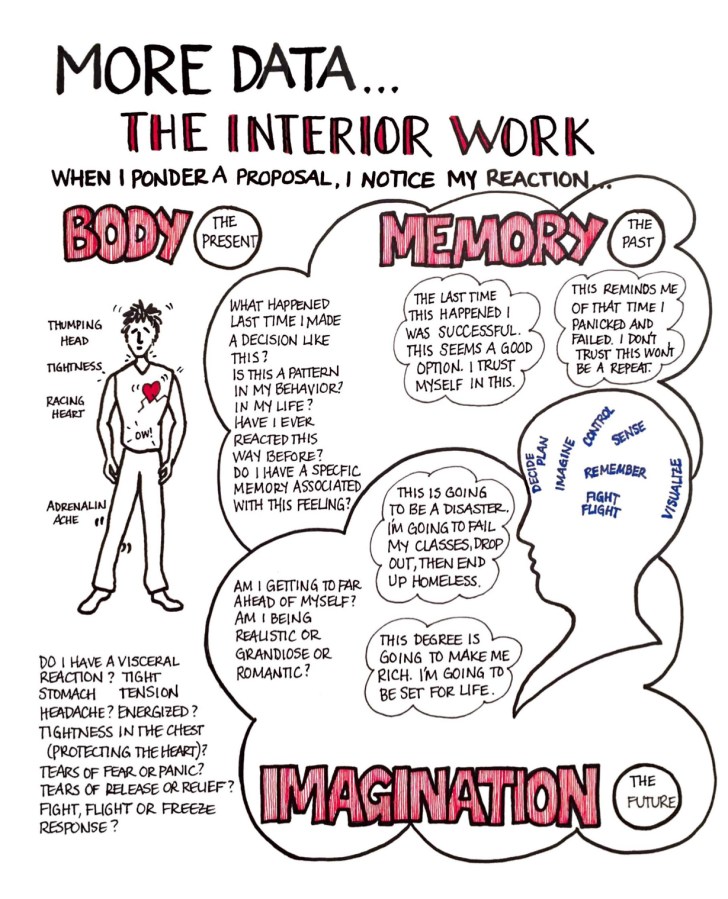 MORE DATA...
THE INTERIOR WORK
WHEN I PONDER A PROPOSAL, I NOTICE MY REACTION...
BODY
THE
PRESENT
THUMPING
HEAD
TIGHTNESS
RACING
HEART
OW!
ADRENALIN
ACHE
DO I HAVE A VISCERAL
REACTION? TIGHT
STOMACH TENSION
HEADACHE? ENERGIZED?
TIGHTNESS IN THE CHEST
(PROTECTING THE HEART)?
TEARS OF FEAR OR PANIC?
TEARS OF RELEASE OR RELIEF?
FIGHT, FLIGHT OR FREEZE
RESPONSE?
MEMORY
THE
PAST
WHAT HAPPENED
LAST TIME I MADE
A DECISION LIKE
THIS?
IS THIS A PATTERN
IN MY BEHAVIOR?
IN MY LIFE?
HAVE I EVER
REACTED THIS
WAY BEFORE?
DO I HAVE A SPECFIC
MEMORY ASSOCIATED
WITH THIS FEELING?
THE LAST TIME
THIS HAPPENED I
WAS SUCCESSFUL.
THIS SEEMS A GOOD
OPTION. I TRUST
MYSELF IN THIS.
THIS REMINDS ME
OF THAT TIME I
PANICKED AND
FAILED. I DON'T
TRUST THIS WONT
BE A REPEAT.
DECIDE
PLAN
IMAGINE
CONTROL
SENSE
REMEMBER
FIGHT
FLIGHT
VISUALIZE
THIS IS GOING
TO BE A DISASTER.
I'M GOING TO FAIL
MY CLASSES, DROP
OUT, THEN END
UP HOMELESS.
AM I GETTING TO FAR
AHEAD OF MYSELF?
AM I BEING
REALISTIC OR
GRANDIOSE OR
ROMANTIC?
THIS DEGREE IS
GOING TO MAKE ME
RICH. I'M GOING TO
BE SET FOR LIFE.
IMAGINATION
THE
FUTURE